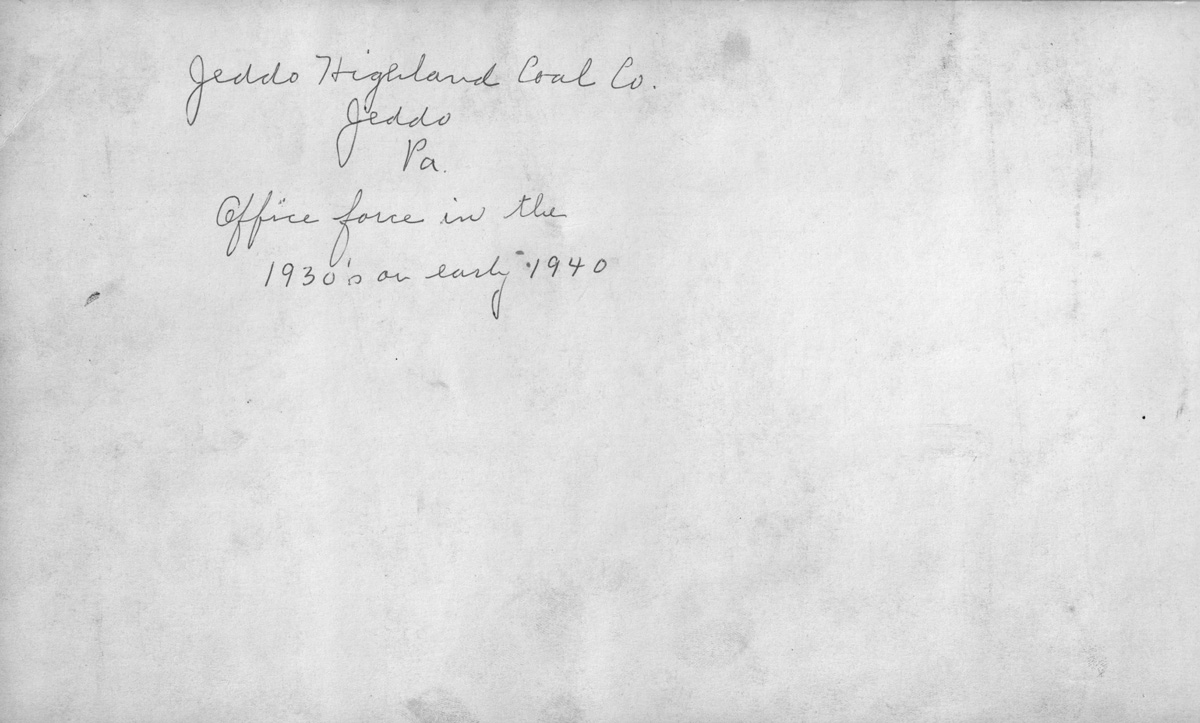 Jeddo Highland Coal Co.
Jeddo
Pa.
Office force in the
1930's or early 1940